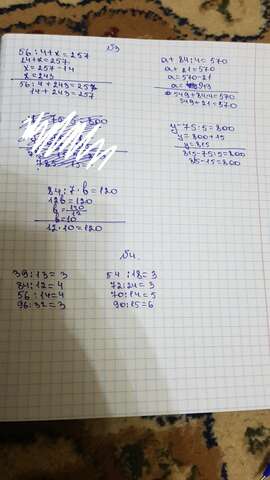 №3
56:4+x=257
14+x=257
x=257-14
x=243
56:4+243=257
14+243=257
a+84:4=570
a+21=570
a=570-21
a=549
549+84:4=570
549+21=570
y-75:5=800
y=800+15
y=815
815-75:5=800
815-15=800
84:7·b=120
12b=120
b=120/12
b=10
12·10=120
№4.
39:13=3
84:12=4
56:14=4
96:32=3
54:18=3
72:24=3
70:14=5
90:15=6